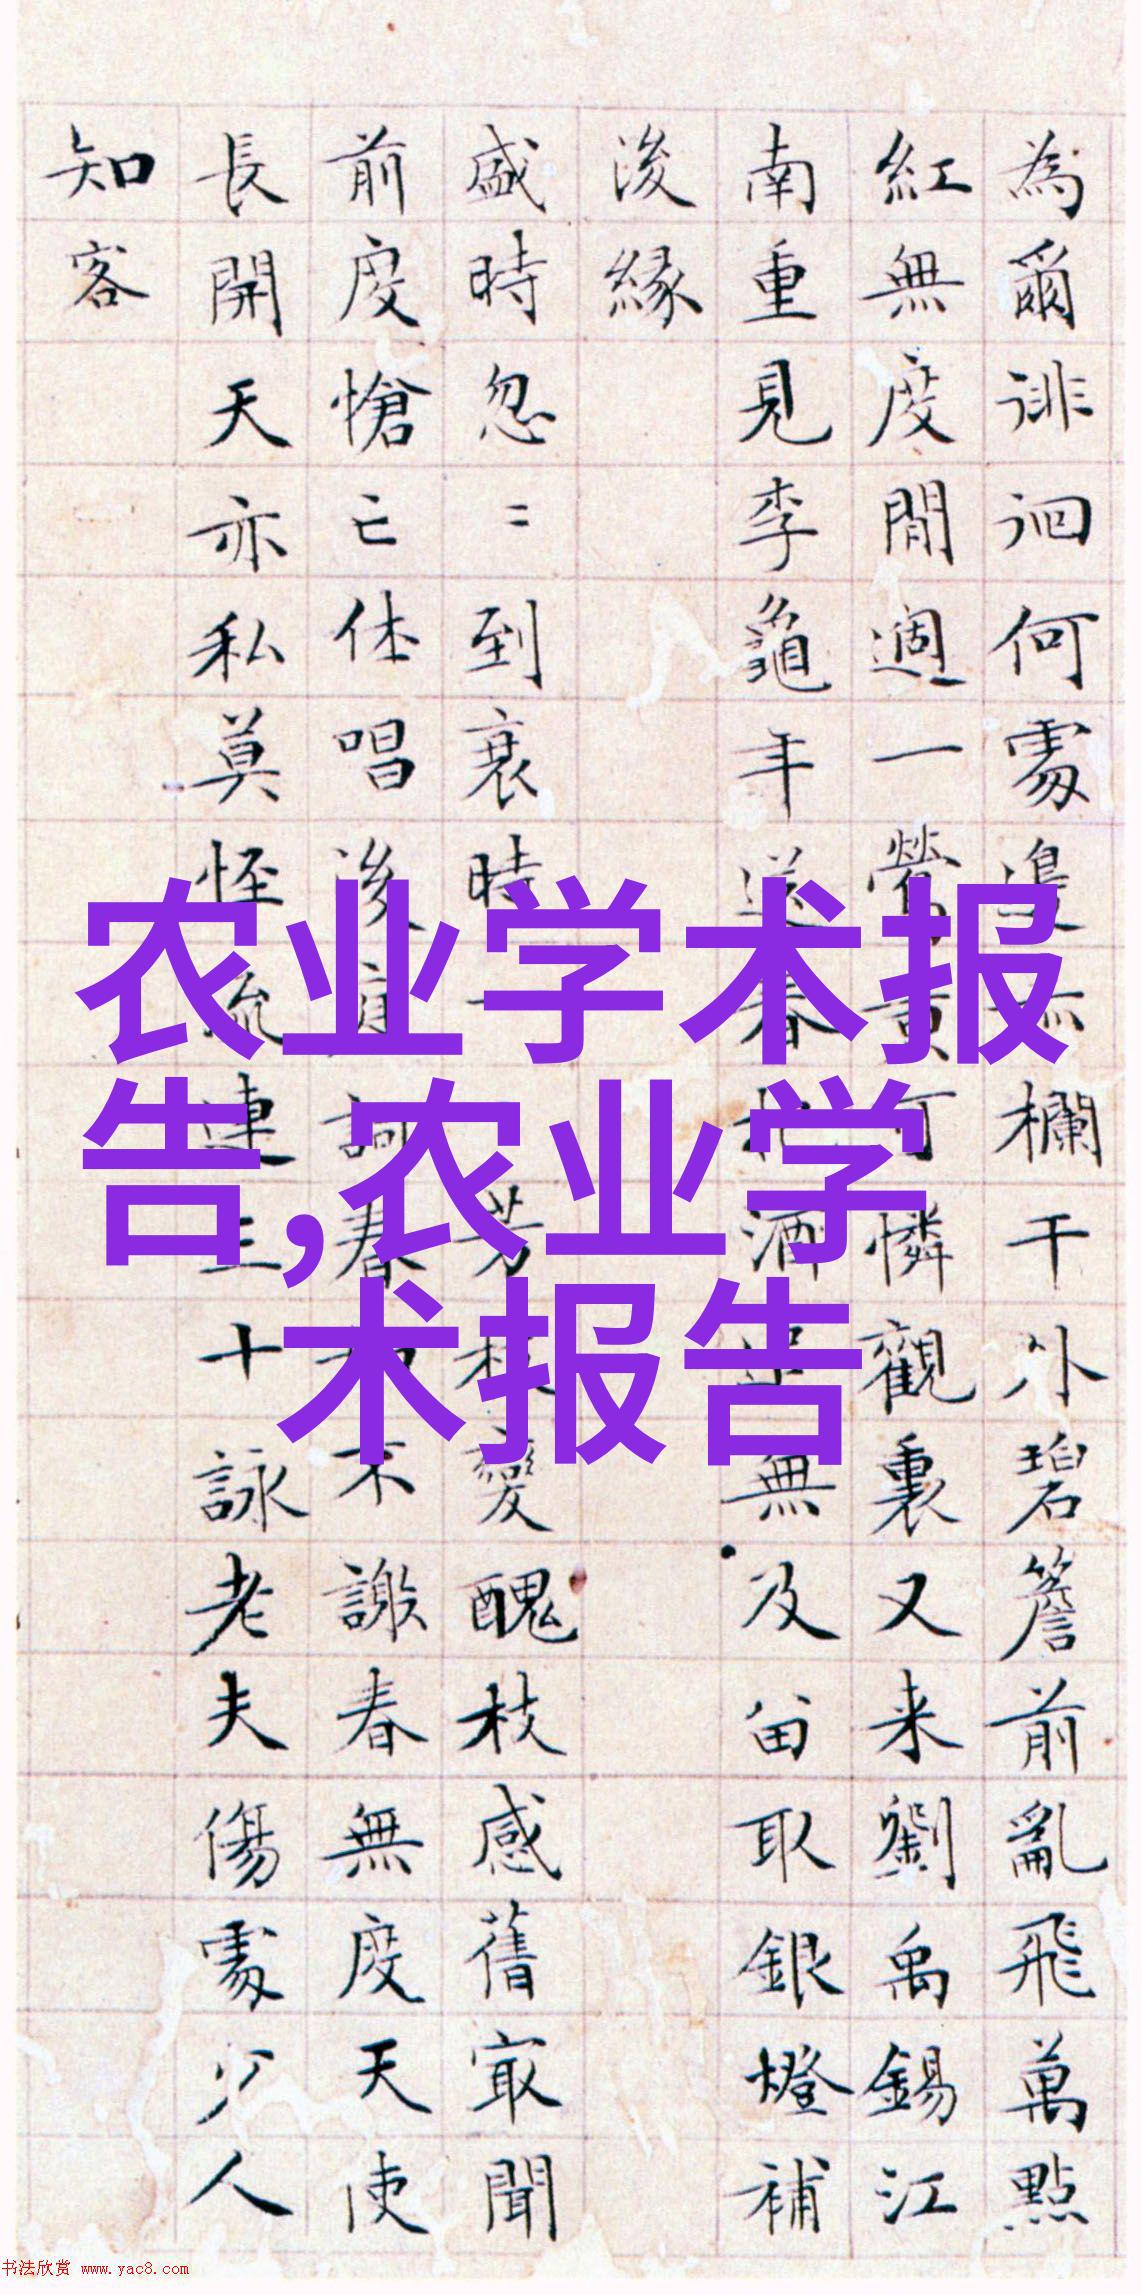 為爾徘徊何處邊欄干外碧簷前亂飛萬點
紅無度閒週一營黃可憐觀裏又来劉禹錫江
南重見李龜年送春酒無及留取銀燈補
後緣
盛時忽〻到衰時芳枝變醜枝感舊最聞
前度愴亡休唱後庭詞春不謝春無度天使
長開天亦私莫怪流連三十詠老夫傷處少人
知客
农业学术报
告,农业学
术报告
书法欣赏 www.yac8.com